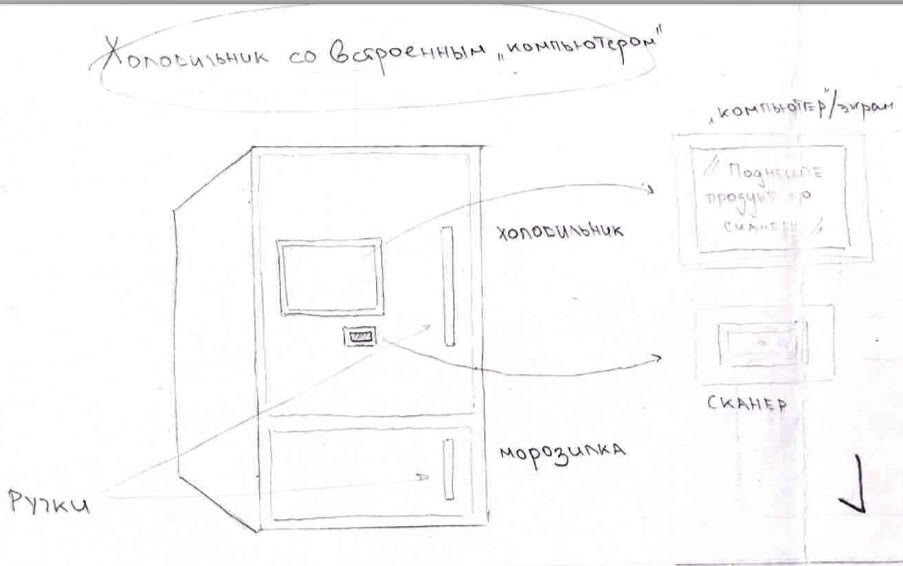 Холодильник со встроенным „компьютером"
„компьютер"/экран
" Поднесите
продукт ко
сканеру "
холодильник
сканер
морозилка
Ручки